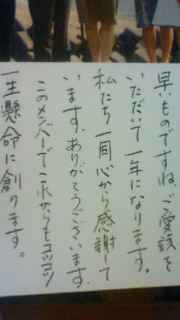 早いものですね、ご愛読を
いただいて一年になります。
私たち一同心から感謝して
います。ありがとうございます。
このメンバーでこれからもコツコツ
一生懸命に創ります。